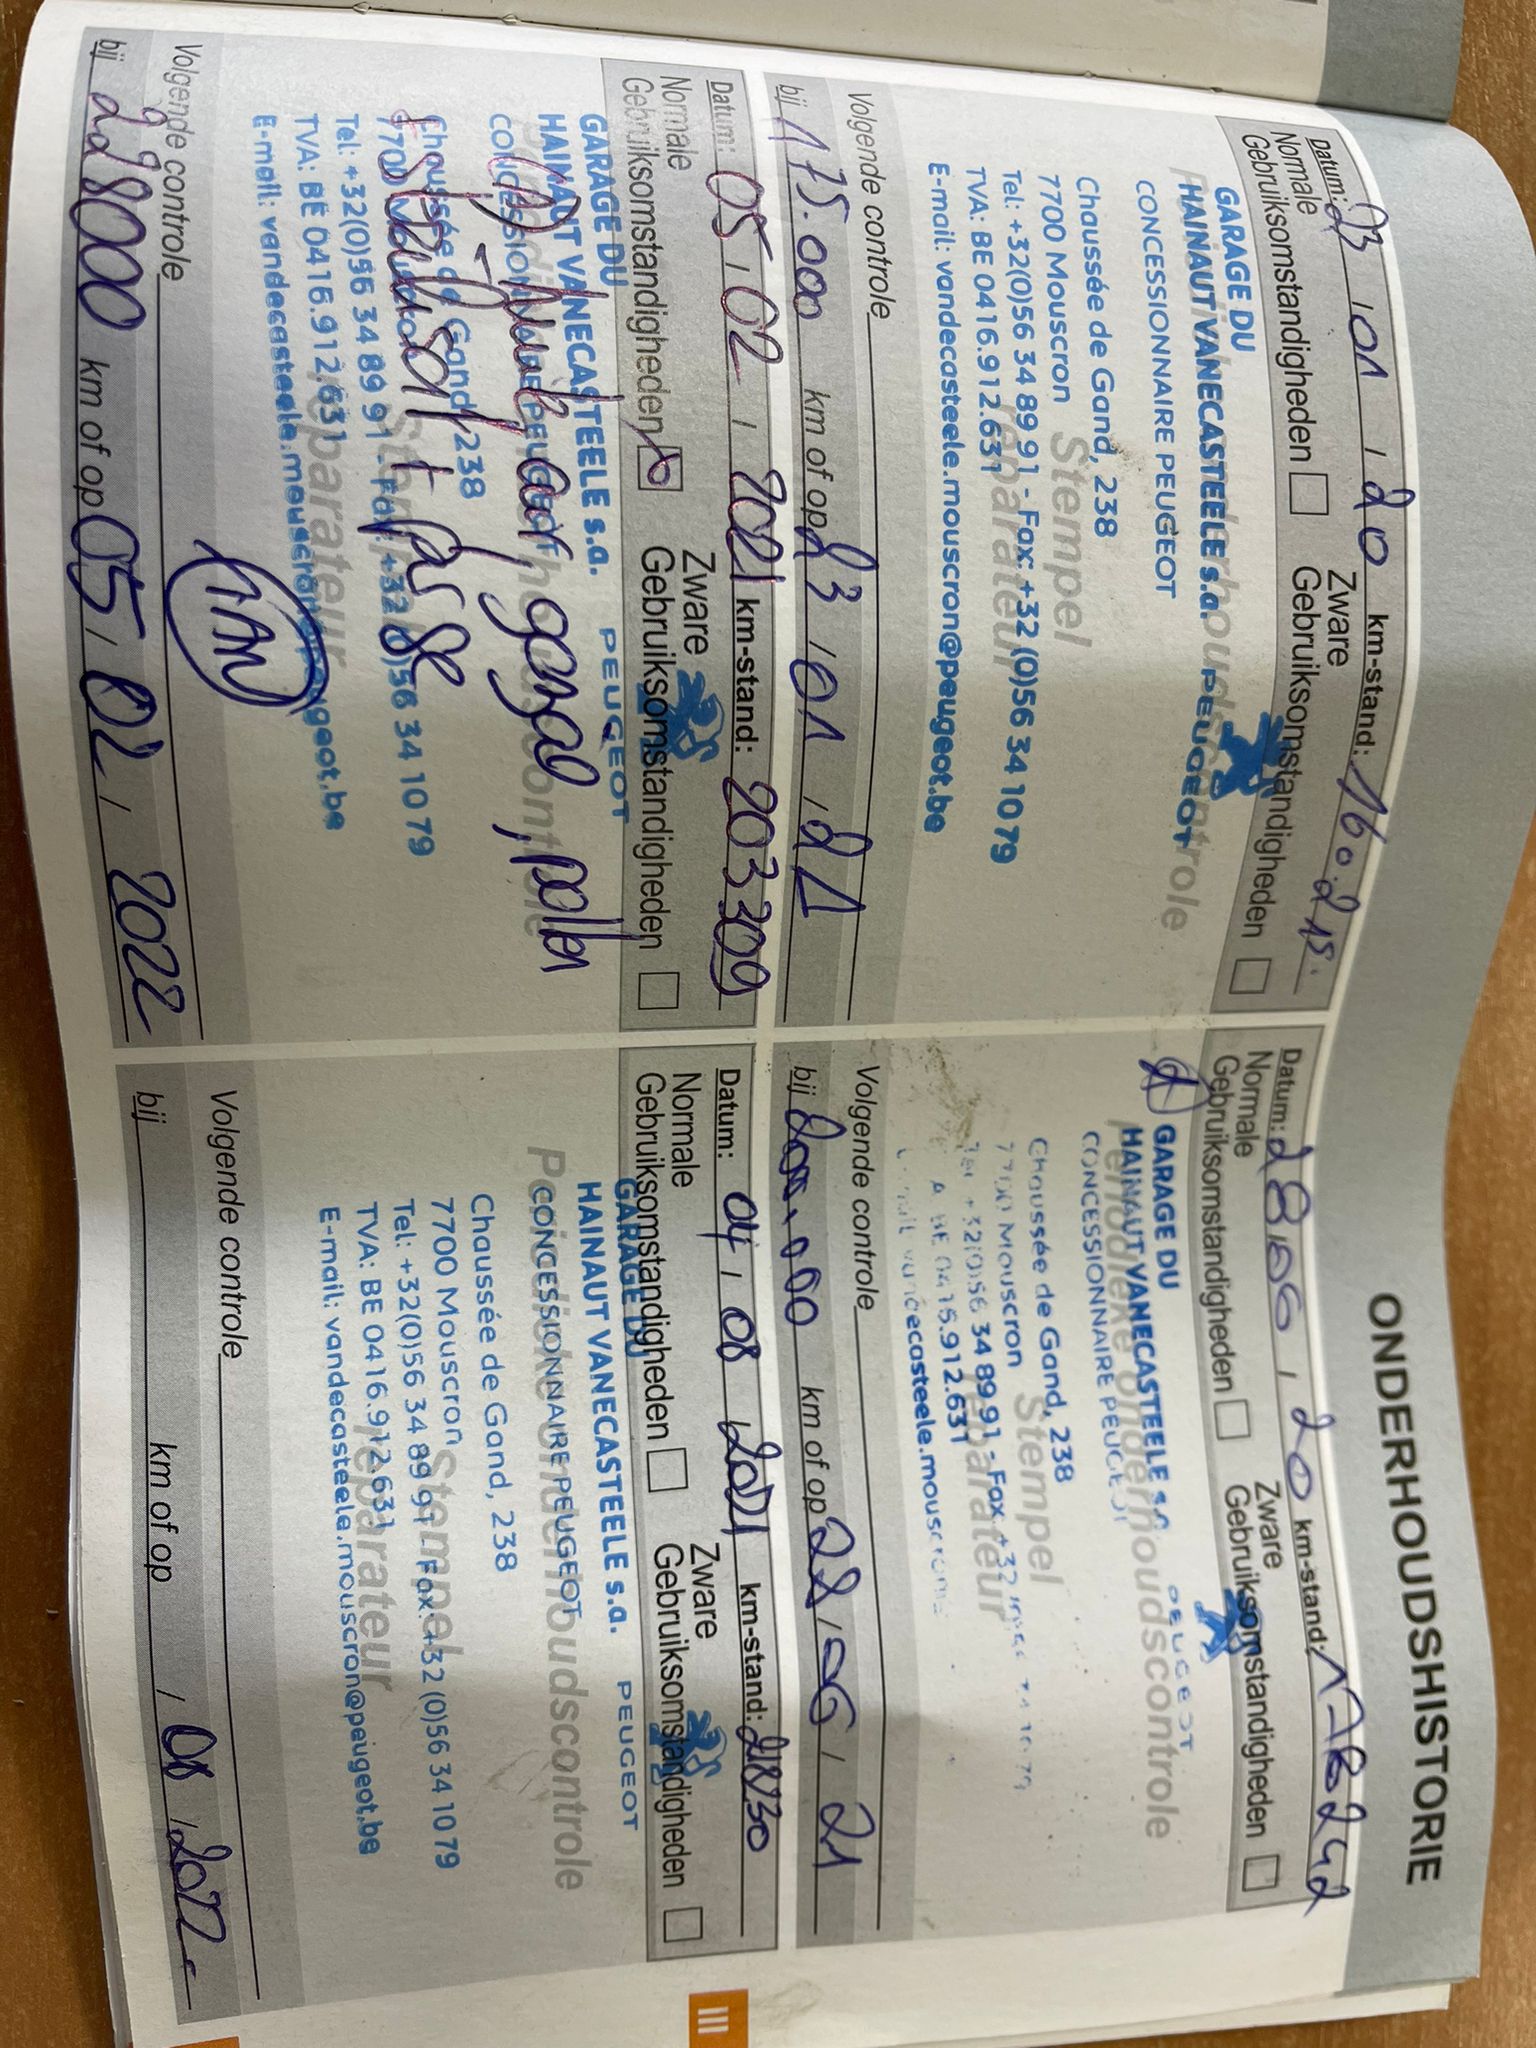 ONDERHOUDSHISTORIE
Datum: 23 / 01 / 20 km-stand: 160.215.
Normale
Gebruiksomstandigheden
Zware
Gebruiksomstandigheden
GARAGE DU
HAINAUT VANECASTEELE s.a. PEUGEOT
CONCESSIONNAIRE PEUGEOT
Chaussée de Gand, 238
7700 Mouscron
Stempel
Tel: +32(0)56 34 89 91 - Fax: +32 (0)56 34 10 79
réparateur
TVA: BE 0416.912.631
E-mail: vandecasteele.mouscron@peugeot.be
Volgende controle
bij 175.000 km of op 23 / 01 / 21
Datum: 28 / 06 / 20 km-stand: 178242
Normale
Gebruiksomstandigheden
Zware
Gebruiksomstandigheden
GARAGE DU
PEUGEOT
HAINAUT VANECASTEELE s.a.
Periodieke onderhoudscontrole
CONCESSIONNAIRE PEUGEOT
Chaussée de Gand, 238
Stempel
7700 Mouscron
Tel: +32(0)56 34 89 91 - Fax: +32 (0)56 34 10 79
réparateur
BE 0416.912.631
vandecasteele.mouscron
Volgende controle
bij 200.000 km of op 22 / 06 / 21
Datum: 05 / 02 / 2021 km-stand: 203 309
Normale
Gebruiksomstandigheden
Zware
Gebruiksomstandigheden
GARAGE DU
PEUGEOT
HAINAUT VANECASTEELE s.a.
CONCESSIONNAIRE PEUGEOT
, pollen
Chaussée de Gand, 238
7700 Mouscron
Tel: +32(0)56 34 89 91 - Fax: +32 (0)56 34 10 79
réparateur
TVA: BE 0416.912.631
E-mail: vandecasteele.mouscron@peugeot.be
Volgende controle
bij 228000 km of op 05 / 02 / 2022
Datum: 04 / 08 / 2021 km-stand: 218230
Normale
Gebruiksomstandigheden
Zware
Gebruiksomstandigheden
GARAGE DU
PEUGEOT
HAINAUT VANECASTEELE s.a.
Periodieke onderhoudscontrole
CONCESSIONNAIRE PEUGEOT
Chaussée de Gand, 238
7700 Mouscron
Stempel
Tel: +32(0)56 34 89 91 - Fax: +32 (0)56 34 10 79
réparateur
TVA: BE 0416.912.631
E-mail: vandecasteele.mouscron@peugeot.be
Volgende controle
bij km of op / 08 / 2022
III